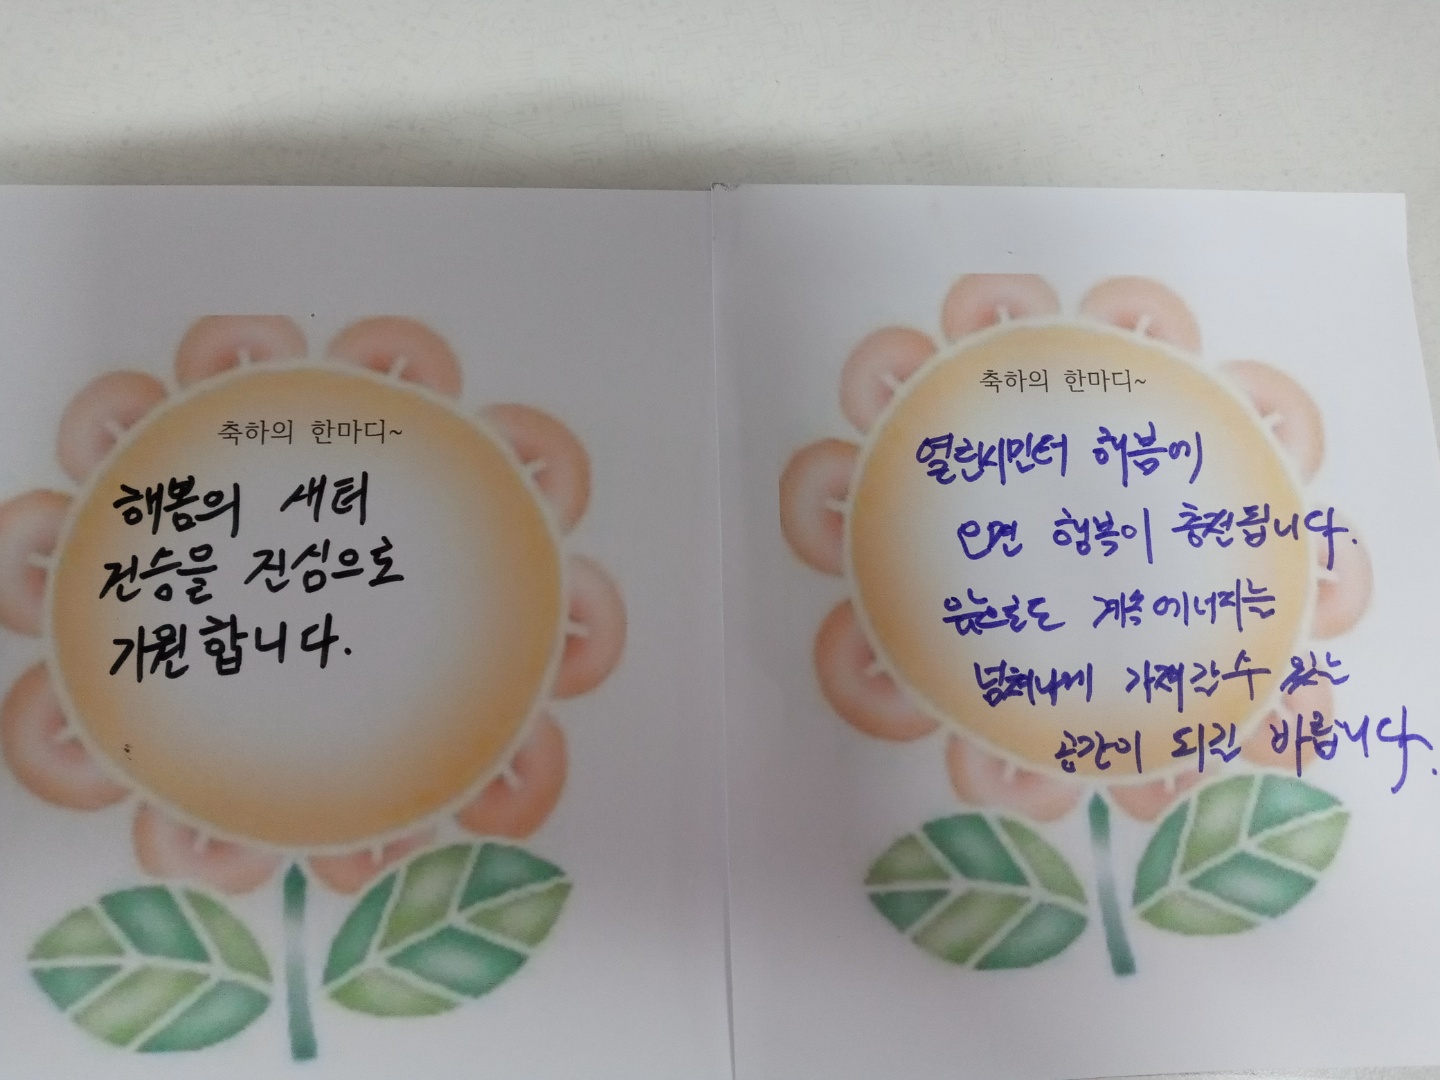 축하의 한마디~
해봄의 새터
건승을 진심으로
기원합니다.
축하의 한마디~
열린시민터 해봄에
오면 행복이 충전됩니다.
계속 에너지는
넘쳐나게 가져갈 수 있는
공간이 되길 바랍니다.